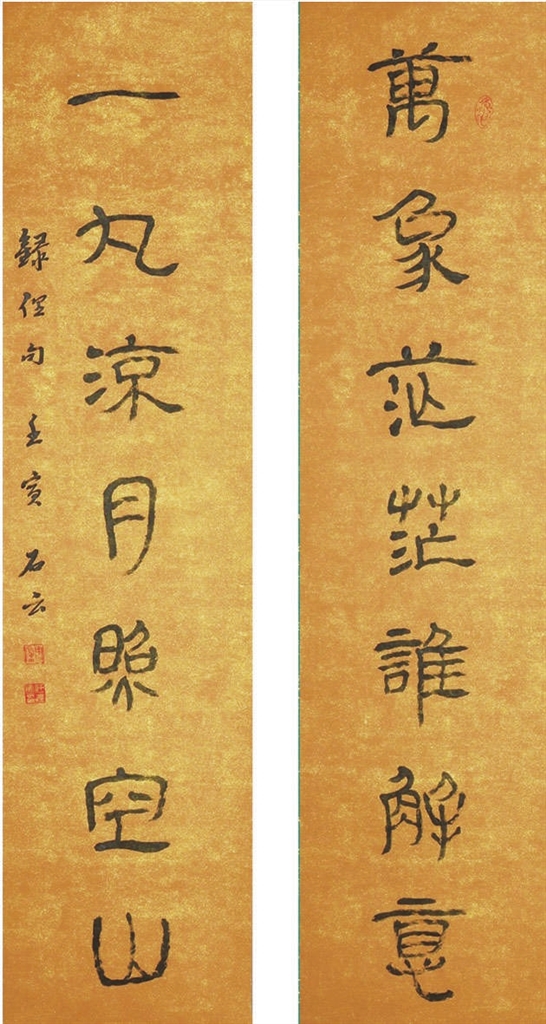 萬象茫茫誰解意
一丸涼月照空山
錄侶句 壬寅 石云